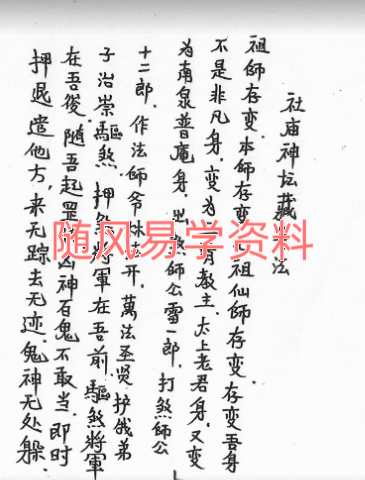 社庙神坛藏法
祖師存变.本師存变.祖仙師存变.存变吾身
不是非凡身.变为一教主.太上老君身.又变
为南泉普庵身.出煞師公雪一郎.打煞師公
十二郎.作法師爷开.萬法圣贤护俄弟
子治祟驅煞.押煞將軍在吾前.驅煞將軍
在吾後.随吾起罡凶神百鬼不敢当.即时
押退遣他方,来无踪去无迹.鬼神无处躲.
随风易学资料